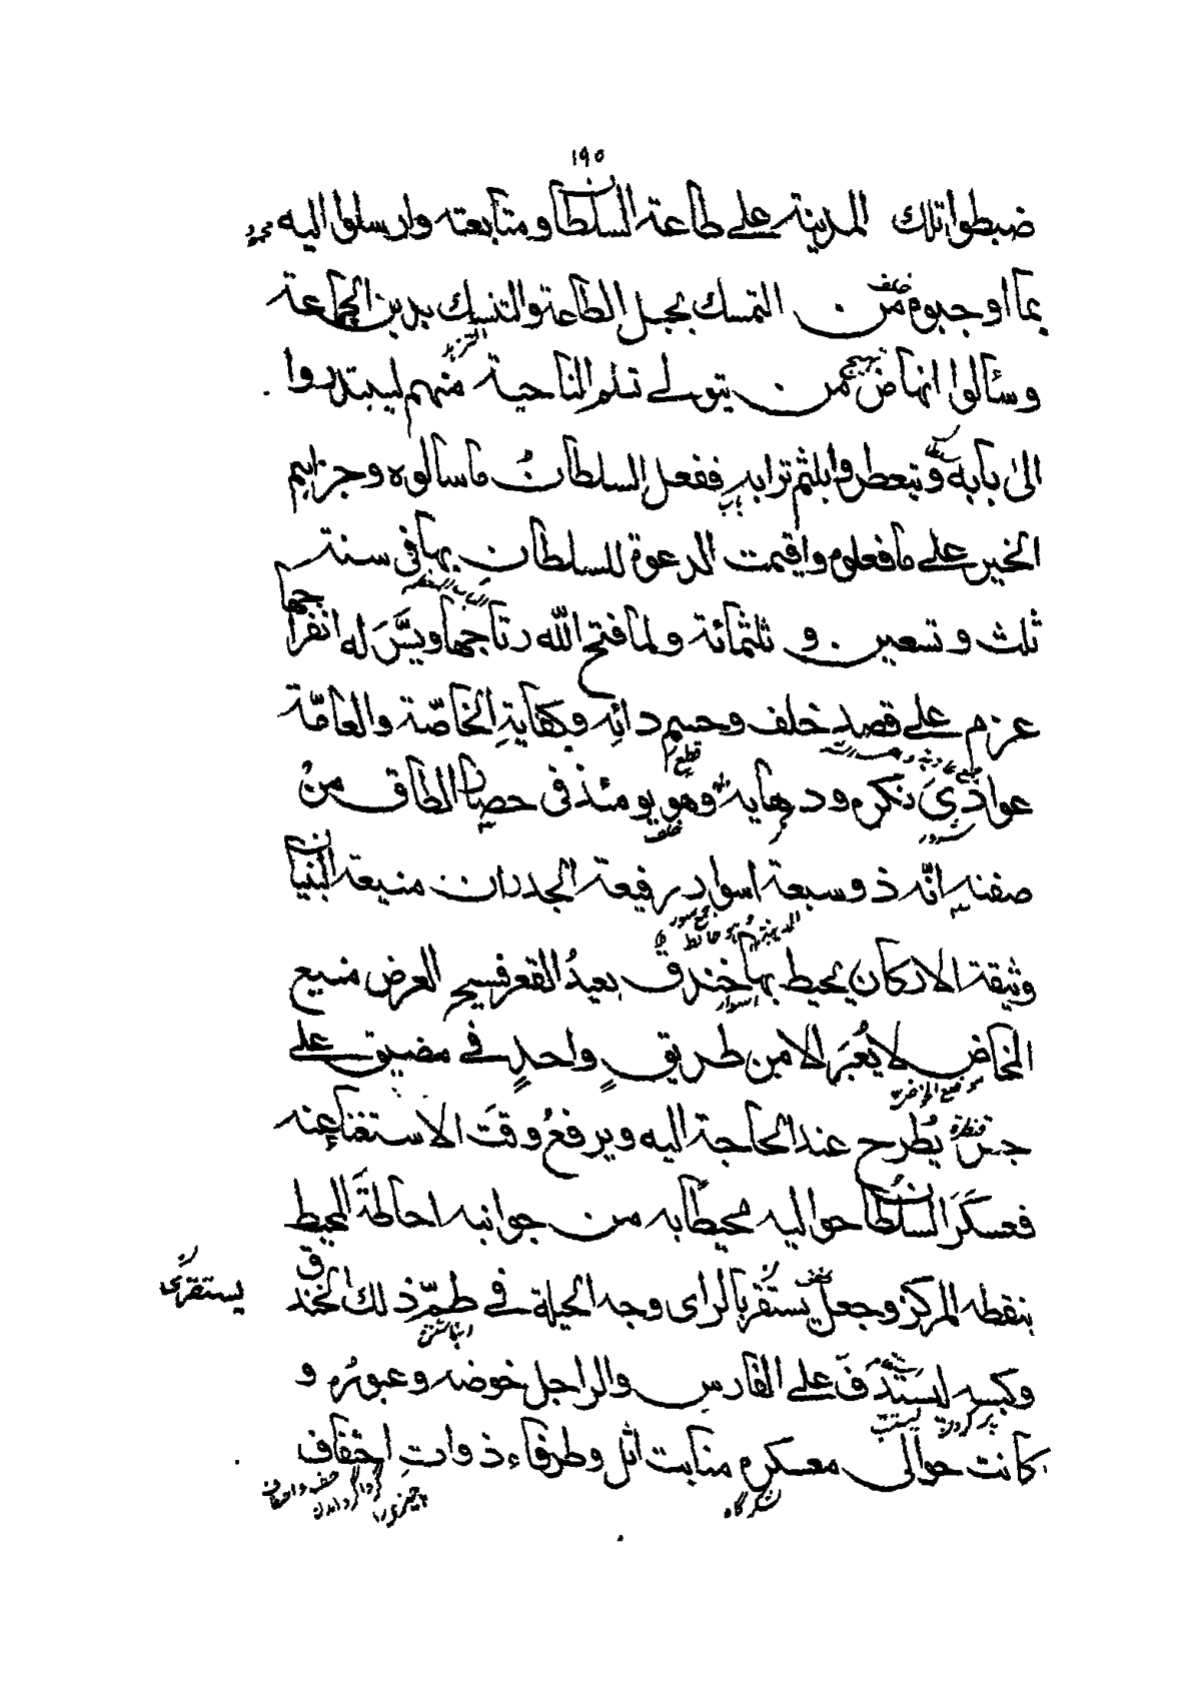 ١٩٥
ضبطوا تلك المدينة على طاعة السلطان ومتابعته وارسلوا اليه
بما اوجبوه من التمسك بحبل الطاعة والتنسك بدين الجماعة
وسألوا انهاض من يتولى تسلم الناحية منهم ليبتدروا
الى بابه ويتعطروا بلثم ترابه ففعل السلطان ما سالوه وجزاهم
الخير على ما فعلوه واقيمت الدعوة للسلطان بها فى سنة
ثلث وتسعين و ثلثمائة ولما فتح الله رتاجها ويسَّرَ له انفراجها
عزم على قصد خلف وحسم دائه وكفاية الخاصّة والعامّة
عوادىَ نكره ودهايه وهو يومئذ فى حصار الطاق من
صفته انّه ذو سبعة اسوار رفيعة الجدران منيعة البنيان
وثيقة الاركان يحيط بها خندق بعيدُ القعر فسيح العرض منيع
المخاض لا يُعبَر الا من طريقٍ واحدٍ في مضيق على
جسر يُطرح عند الحاجة اليه ويرفعُ وقتَ الاستغناء عنه
فعسكَرَ السلطان حواليه محيطا به من جوانبه احاطةَ المحيط
بنقطه المركز وجعل يستقرى بالراى وجه الحيلة في طمّ ذلك الخندق
يستقرى
وكبسه ليستدفَّ على الفارس والراجل خوضه وعبورُه و
كانت حوالى معسكره منابت اثل وطرفاء ذوات احقاف
لشكرگاه